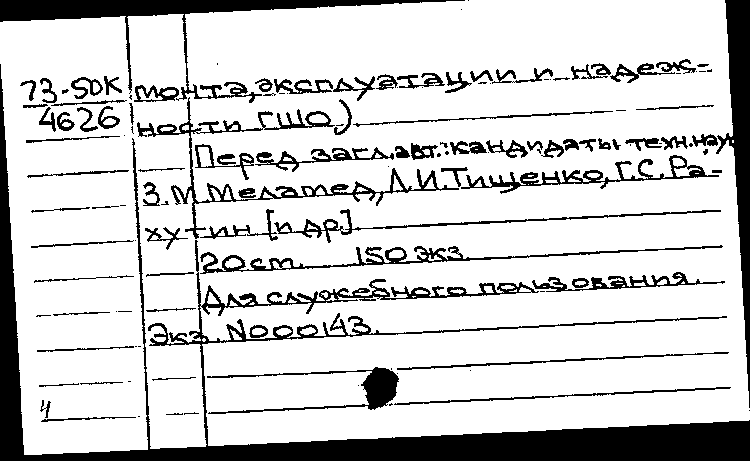 73-5ДК монта, эксплуатации и надеж-
4626 ности ГШО).
Перед загл. авт.: кандидаты техн. наук
З.М Меламед, Л.И. Тищенко, Г.С. Ра-
хутин [и др].
20 cm. 150 экз.
Для служебного пользования.
Экз. N000143.
4